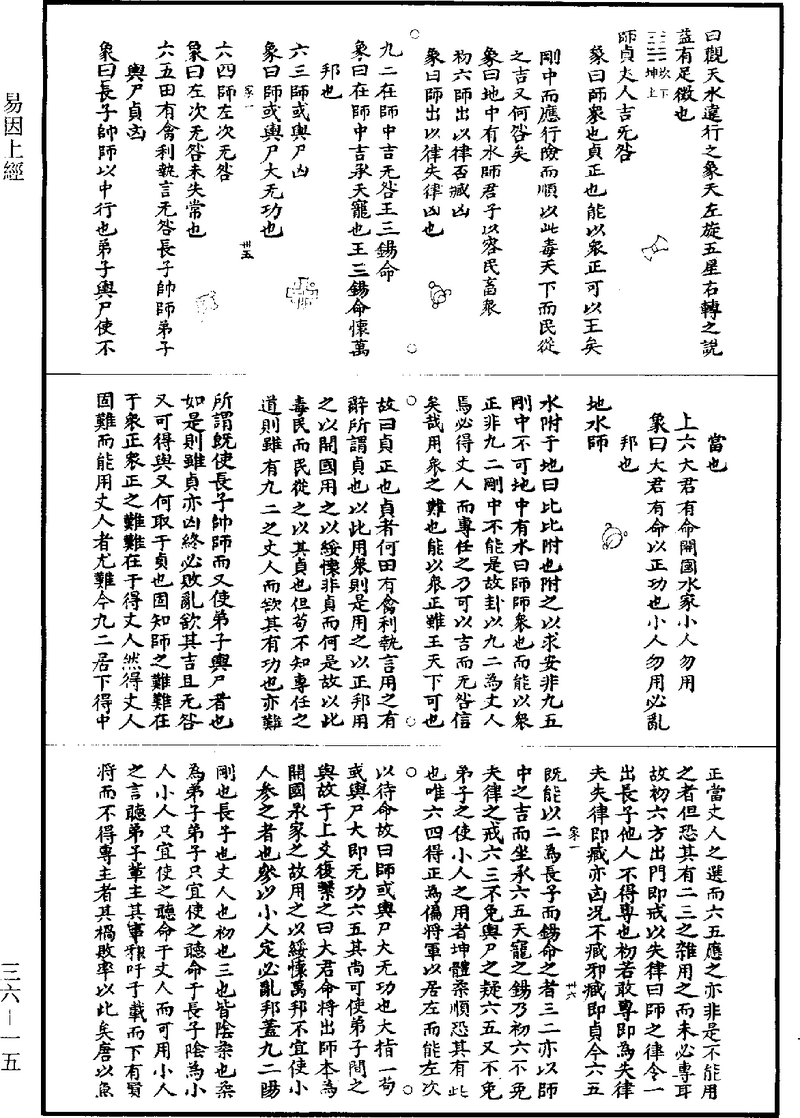 易因上經
三六—一五
曰觀天水違行之象天左旋五星右轉之說
益有足徵也
坎下
坤上
師貞丈人吉无咎
彖曰師衆也貞正也能以衆正可以王矣
剛中而應行險而順以此毒天下而民從
之吉又何咎矣
象曰地中有水師君子以容民畜衆
初六師出以律否臧凶
象曰師出以律失律凶也
九二在師中吉无咎王三錫命
象曰在師中吉承天寵也王三錫命懷萬
邦也
六三師或輿尸凶
象曰師或輿尸大无功也
卷一
卅五
六四師左次无咎
象曰左次无咎未失常也
六五田有禽利執言无咎長子帥師弟子
輿尸貞凶
象曰長子帥師以中行也弟子輿尸使不
當也
上六大君有命開國承家小人勿用
象曰大君有命以正功也小人勿用必亂
邦也
地水師
水附于地曰比比附也附之以求安非九五
剛中不可地中有水曰師師衆也而能以衆
正非九二剛中不能是故卦以九二為丈人
焉必得丈人而專任之乃可以吉而无咎信
矣哉用衆之難也能以衆正雖王天下可也
故曰貞正也貞者何田有禽利執言用之有
辭所謂貞也以比用衆則是用之以正邦用
之以開國用之以綏懷非貞而何是故以此
毒民而民從之以其貞也但苟不知專任之
道則雖有九二之丈人而欲其有功也亦難
所謂旣使長子帥師而又使弟子輿尸者也
如是則雖貞亦凶終必敗亂欲其吉且无咎
又可得與又何取于貞也固知師之難難在
于衆正衆正之難難在于得丈人然得丈人
固難而能用丈人者尤難今九二居下得中
正當丈人之選而六五應之亦非是不能用
之者但恐其有二三之雜用之而未必專耳
故初六方出門即戒以失律曰師之律令一
出長子他人不得專也初若敢專即為失律
夫失律即臧亦凶况不臧邪臧即貞今六五
卷一
卅六
既能以二為長子而錫命之者三二亦以師
中之吉而坐承六五天寵之錫乃初六不免
失律之戒六三不免輿尸之疑六五又不免
弟子之使小人之用者坤體柔順恐其有此
也唯六四得正為偏將軍以居左而能左次
以待命故曰師或輿尸大无功也大指一苟
或輿尸大即无功六五其尚可使弟子間之
與故于上爻復繫之曰大君命將出師本為
開國承家之故用之以綏懷萬邦不宜使小
人參之者也參以小人定必亂邦蓋九二陽
剛也長子也丈人也初也三也皆陰柔也柔
為弟子弟子只宜使之聽命于長子陰為小
人小人只宜使之聽命于丈人而可用小人
之言聽弟子輩主其事邪吁于載而下有賢
將而不得專主者其禍敗率以此矣唐以魚